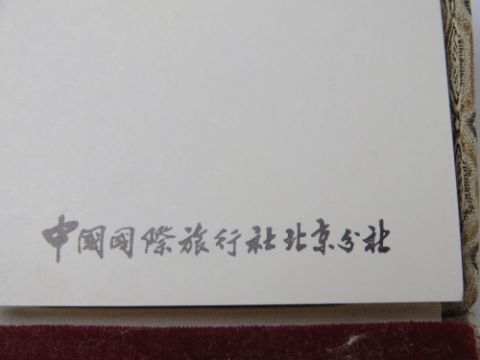 中國国際旅行社北京分社